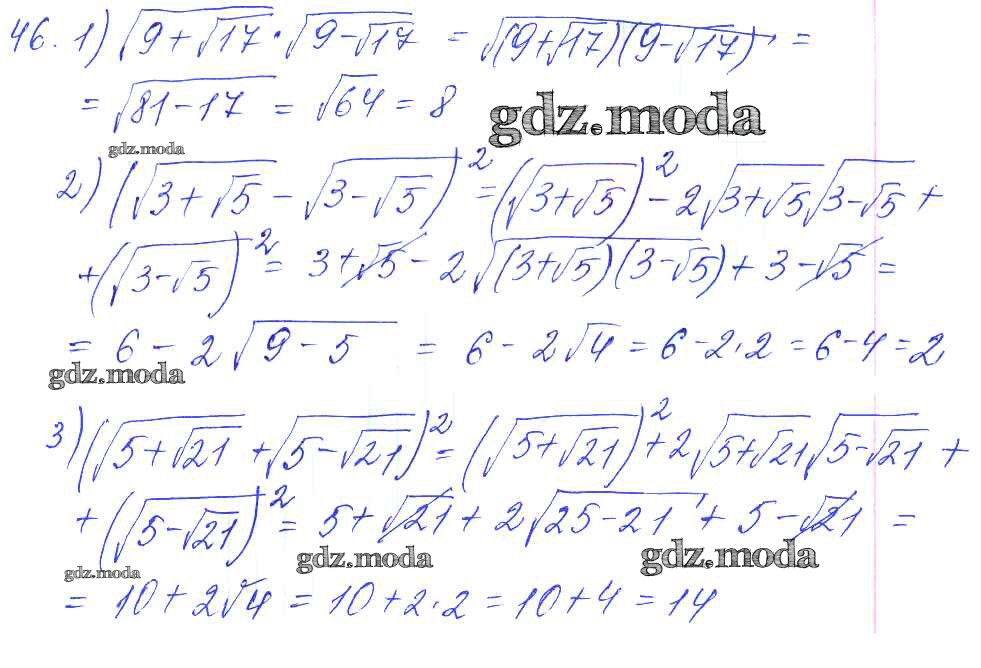 46. 1) √(9+√17) · √(9-√17) = √((9+√17)(9-√17)) =
= √(81-17) = √64 = 8
gdz.moda
gdz.moda
2) (√(3+√5) - √(3-√5))² = (√(3+√5))² - 2√(3+√5)√(3-√5) +
+ (√(3-√5))² = 3+√5 - 2√((3+√5)(3-√5)) + 3-√5 =
= 6 - 2√(9-5) = 6 - 2√4 = 6-2·2 = 6-4 = 2,
gdz.moda
3) (√(5+√21) + √(5-√21))² = (√(5+√21))² + 2√(5+√21)√(5-√21) +
+ (√(5-√21))² = 5+√21 + 2√(25-21) + 5-√21 =
gdz.moda
gdz.moda
gdz.moda
= 10+2√4 = 10+2·2 = 10+4 = 14